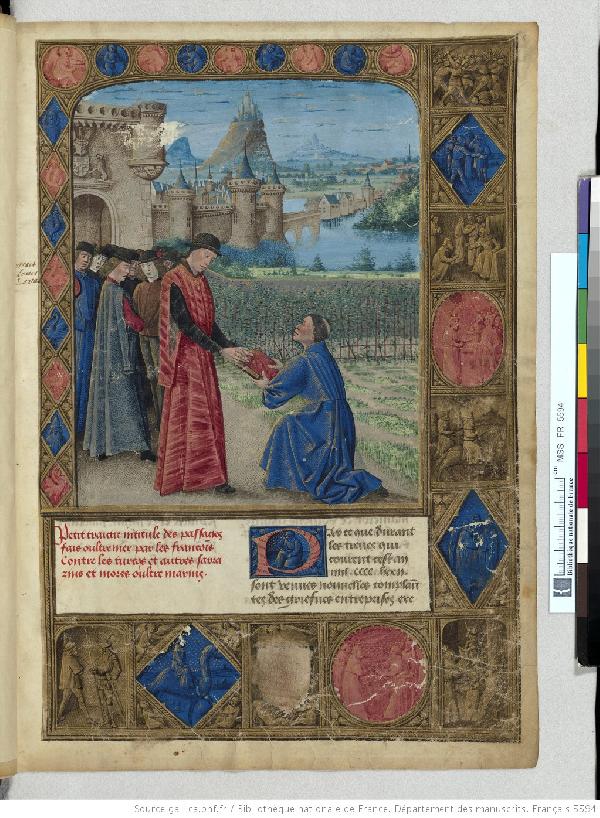 Petit traictie intitule des passages
fais oultre mer par les francois
Contre les turcqs et autres sarra
zins et mores oultre marins.
Pas ce que durant
les treves qui
courent cest an
mil cccc lxxii
sont venues nouvelles complain
tes des griefues entreprises exe
MSS FR 5594
Bibliothèque nationale de France
Source gallica.bnf.fr / Bibliothèque nationale de France. Département des manuscrits. Français 5594